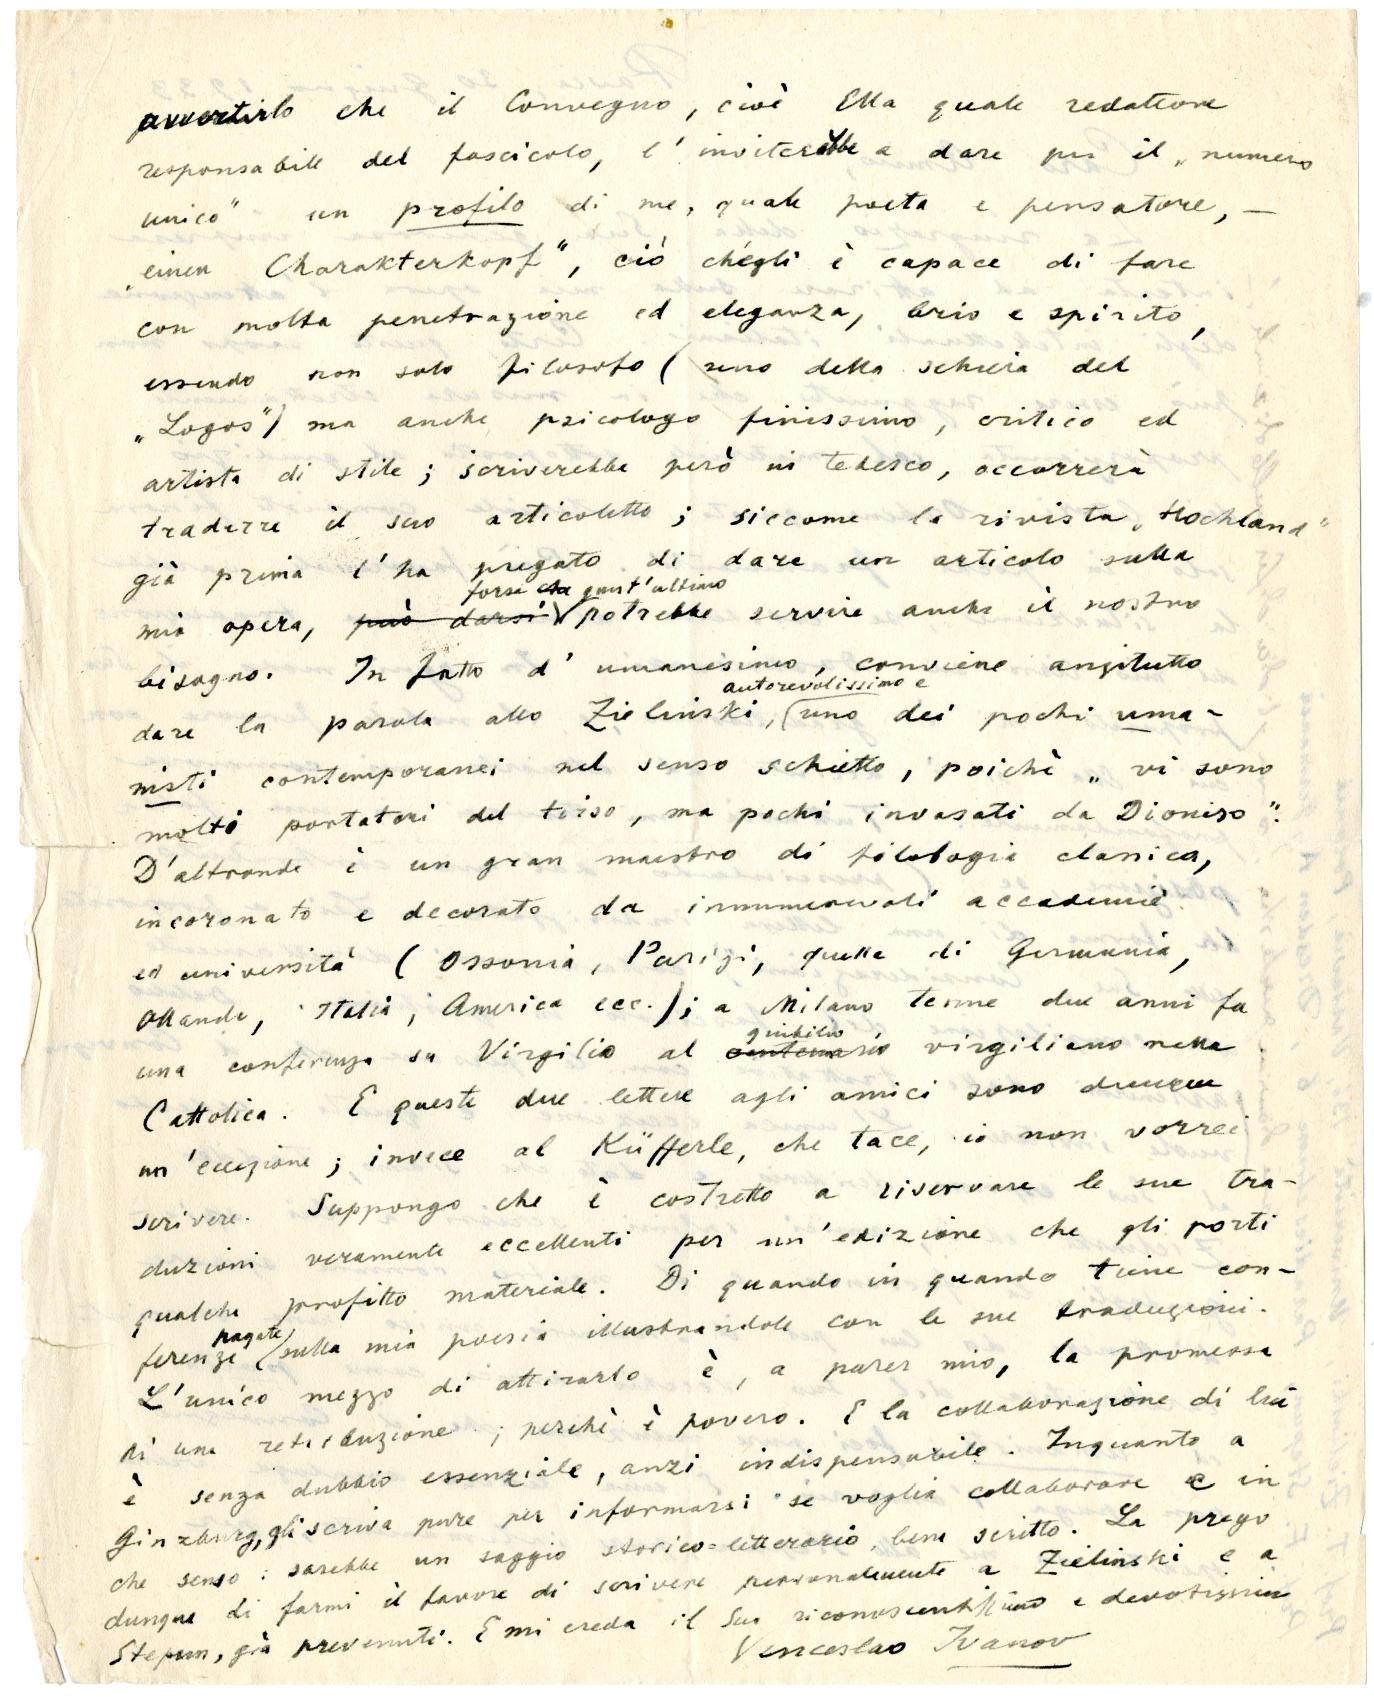 avvertirlo che il Convegno, cioè Ella quale redattore
responsabile del fascicolo, l'inviterebbe a dare per il „numero
unico" un profilo di me, quale poeta e pensatore, —
„einen Charakterkopf", ciò ch'egli è capace di fare
con molta penetrazione ed eleganza, brio e spirito,
essendo non solo filosofo (uno della schiera del
„Logos") ma anche psicologo finissimo, critico ed
artista di stile; scriverebbe però in tedesco, occorrerà
tradurre il suo articoletto; siccome la rivista „Hochland"
già prima l'ha pregato di dare un articolo sulla
forse che quest'ultimo
mia opera, può darsi potrebbe servire anche il nostro
bisogno. In fatto d'umanesimo, conviene anzitutto
autorevolissimo e
dare la parola allo Zielinski, (uno dei pochi uma-
nisti contemporanei nel senso schietto, poichè „vi sono
molti portatori del tirso, ma pochi invasati da Dioniso".
D'altronde è un gran maestro di filologia classica,
incoronato e decorato da innumerevoli accademie
ed università (Ossonia, Parigi, quelle di Germania,
Ollanda, Italia, America ecc.); a Milano tenne due anni fa
giubileo
una conferenza su Virgilio al centenario virgiliano nella
Cattolica. E queste due lettere agli amici sono dunque
un'eccezione; invece al Küfferle, che tace, io non vorrei
scrivere. Suppongo che è costretto a riservare le sue tra-
duzioni veramente eccellenti per un'edizione che gli porti
qualche profitto materiale. Di quando in quando tiene con-
pagate
ferenze (sulla mia poesia illustrandole con le sue traduzioni.
L'unico mezzo di attirarlo è, a parer mio, la promessa
di una retribuzione; perchè è povero. E la collaborazione di lui
è senza dubbio essenziale, anzi indispensabile. Inquanto a
Ginzburg, gli scriva pure per informarsi se voglia collaborare e in
che senso: sarebbe un saggio storico-letterario bene scritto. La prego
dunque di farmi il favore di scrivere personalmente a Zielinski e a
Stepun, già prevenuti. E mi creda il Suo riconoscentissimo e devotissimo
Venceslao Ivanov